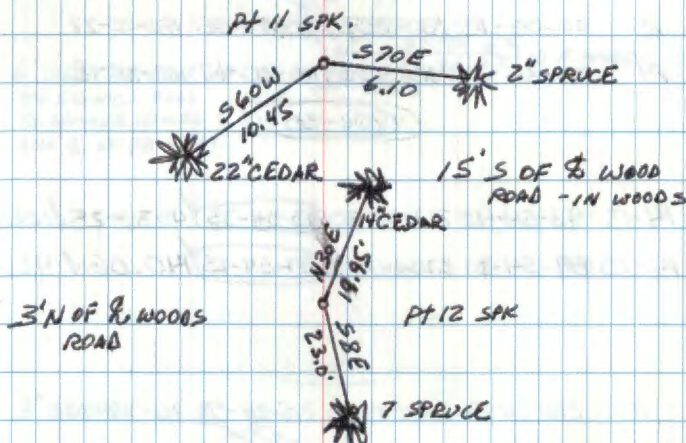 Pt 11 SPK.
S70E
6.10
2" SPRUCE
S60W
10.45
22" CEDAR
15' S OF ℄ WOOD
ROAD - IN WOODS
14" CEDAR
N30E
19.95'
3' N OF ℄ WOODS
ROAD
Pt 12 SPK
S8E
23.0'
7 SPRUCE